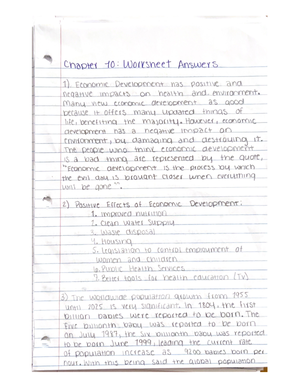 Chapter 10: Worksheet Answers
1) Economic Development has positive and
negative impacts on health and environment.
Many new economic development as good
because it offers many updated things of
life, benefiting the majority. However, economic
development has a negative impact on
environment, by damaging and destroying it.
The people who think economic development
is a bad thing are represented by the quote,
"Economic development is the process by which
the evil day is brought closer when everything
will be gone".
2) Positive Effects of Economic Development:
1. Improved nutrition
2. Clean Water Supply
3. Waste disposal
4. Housing
5. Legislation to control employment of
women and children
6. Public Health Services
7. Better tools for health education (TV)
3) The worldwide population growth from 1955
until 2025 is very significant. In 1804, the first
billion babies were reported to be born. The
five billionth baby was reported to be born
on July 1987, the six billionth baby was reported
to be born June 1999, leading the current rate
of population increase as 9200 babies born per
hour. With this being said the global population